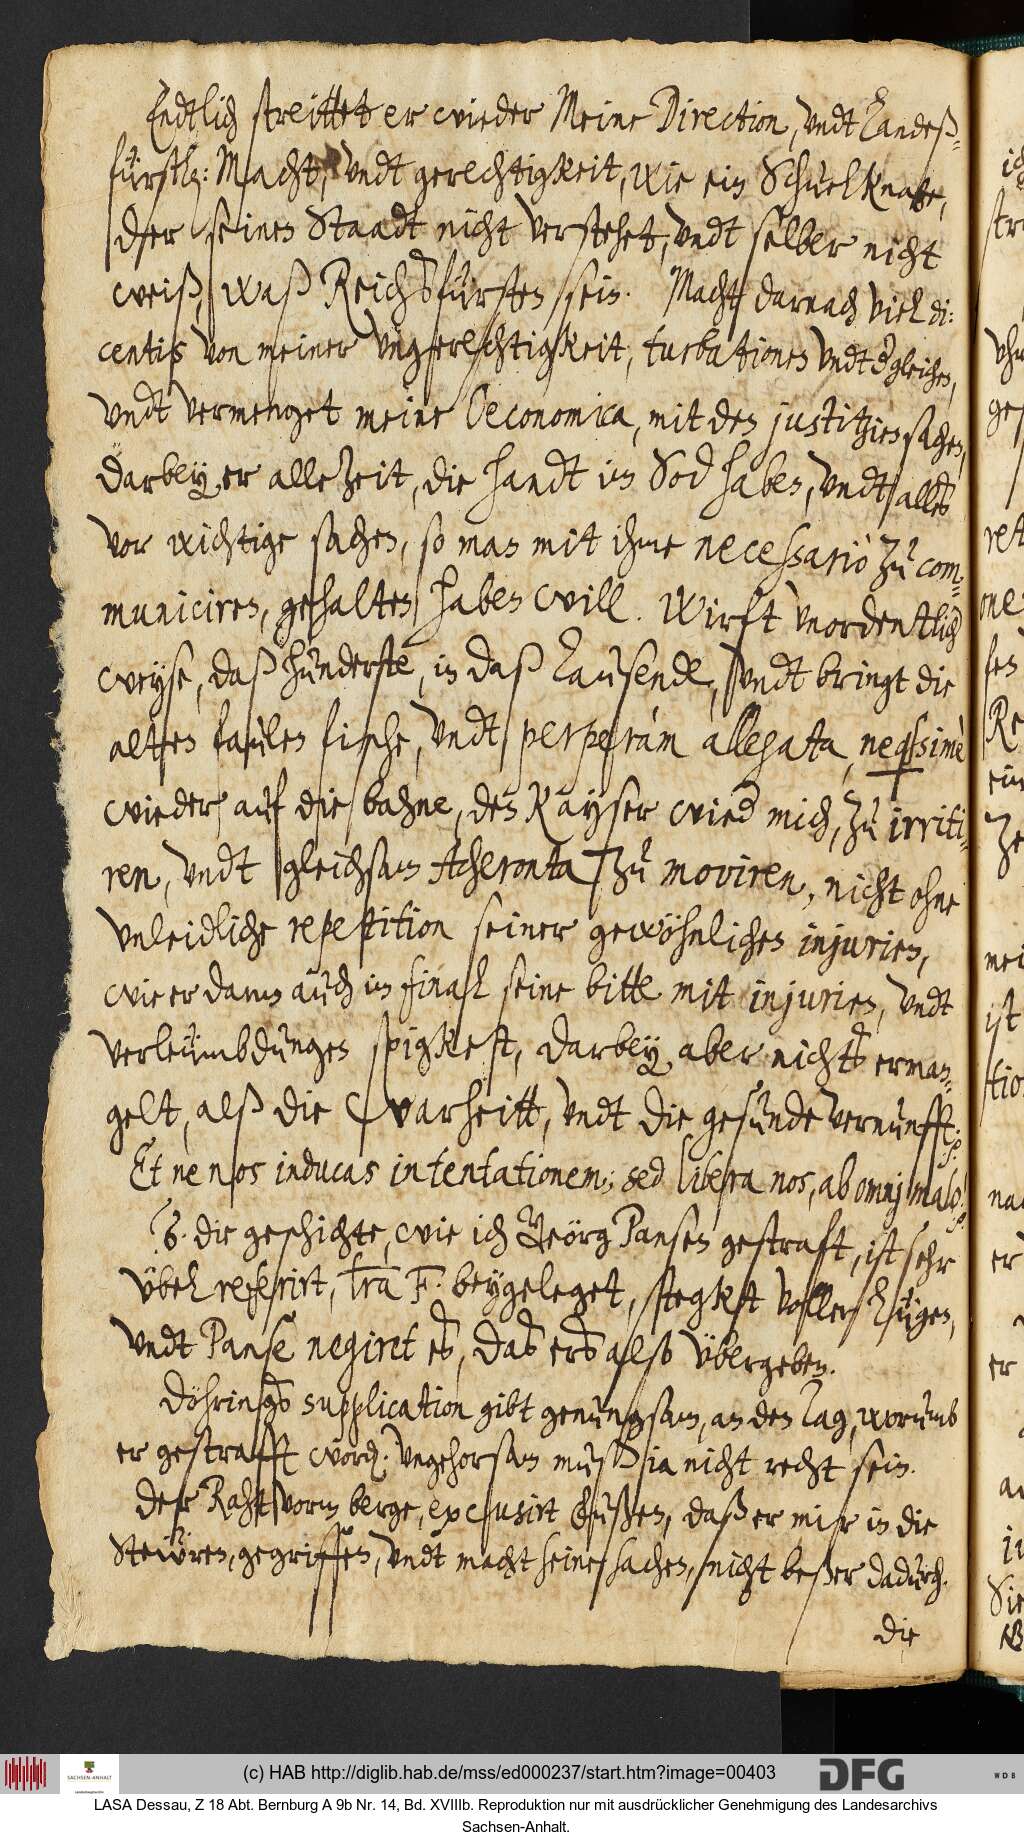 Endtlich streittet er wieder Meine Direction, vndt Landeß-
fürstl: Macht, vndt gerechtigkeit, wie ein Schuelknabe,
der seinen Staadt nicht verstehet, vndt selber nicht
weiß, waß Reichsfürsten sein. Macht darnach viel di-
centis von meiner vngerechtigkeit, turbationen vndt dergleichen,
vndt vermenget meine Oeconomica, mit den justitziensachen,
darbey er alle zeit, die handt im Sod haben, vndt alles
vor wichtige sachen, so man mit ihme necessariò zu com-
municiren, gehalten haben will. Wirft vnordentlich
weyse, daß hunderste, in daß Tausende, vndt bringt die
alten faulen fische, vndt perperàm allegata, neqssimè
wieder auf die bahne, den Kayser wied mich, zu irriti-
ren, vndt gleichsam Acheronta zu moviren, nicht ohne
vnleidliche repetition seiner gewöhnlichen injurien,
wie er dann auch in final seine bitte mit injurien, vndt
verleumbdungen spigkest, darbey aber nichts erman-
gelt, alß die warheitt, vndt die gesunde vernunfft.
Et ne nos inducas in tentationem; sed libera nos, ab omnj malo!
die geschichte, wie ich Geörg Pansen gestraft, ist sehr
übel referirt, lra F. beygeleget, stegkt voller Lügen,
vndt Panse negiret es, das ers also übergeben.
Döhrings supplication gibt genungsam, an den Tag, worumb
er gestrafft word. vngehorsam muß ia nicht recht sein.
Der Raht vorm berge, excusirt bußen, daß er mir in die
Steüren, gegriffen, vndt macht seine sachen, nicht beßer dadurch.
die
(c) HAB http://diglib.hab.de/mss/ed000237/start.htm?image=00403
SACHSEN-ANHALT
DFG
WDB
LASA Dessau, Z 18 Abt. Bernburg A 9b Nr. 14, Bd. XVIIIb. Reproduktion nur mit ausdrücklicher Genehmigung des Landesarchivs
Sachsen-Anhalt.